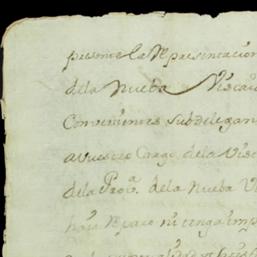 presente la Representacion
dela Nueba Viscai
Conscientes subdelegan
a vuestro Cargo, dela Visi
dela Prov.ª dela Nueba Vi
haia Reparo ni tenga Imp